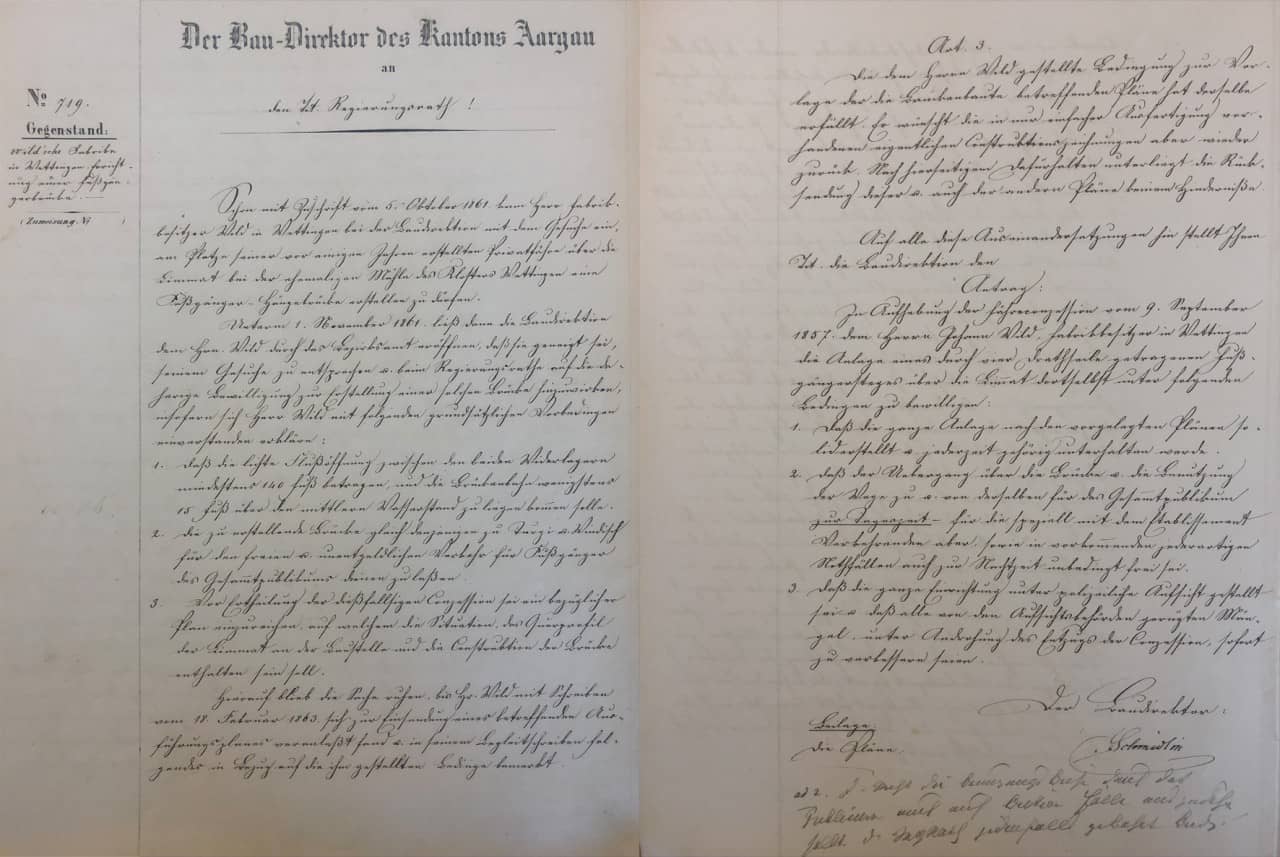 Der Bau-Direktor des Kantons Aargau
an
den Tit. Regierungsrath!
No 719.
Gegenstand:
Wild'sche Fabrike
in Wettingen Erricht-
ung einer Fußgän-
gerbrücke. —
(Zumeisung. No )
Schon mit Zuschrift vom 5. Oktober 1861 kam Herr Fabrik-
besitzer Wild in Wettingen bei der Baudirektion mit dem Gesuche ein,
am Platze seiner vor einigen Jahren erstellten Privatfähre über die
Limmat bei der ehemaligen Mühle des Klosters Wettingen eine
Fußgänger-Hängebrücke erstellen zu dürfen.
Unterm 1. November 1861. ließ dann die Baudirektion
dem Hrn. Wild durch das Bezirksamt eröffnen, daß sie geneigt sei,
seinem Gesuche zu entsprechen u. beim Regierungsrathe auf die da-
herige Bewilligung zur Erstellung einer solchen Brücke hinzuwirken,
insofern sich Herr Wild mit folgenden grundsätzlichen Vorbedingen
einverstanden erkläre:
1. daß die lichte Flußöffnung zwischen den beiden Widerlagern
mindestens 140 Fuß betragen, und die Brückenbahn wenigstens
15 Fuß über den mittlern Wasserstand zu liegen kommen solle.
2. die zu erstellende Brücke gleich denjenigen zu Turgi u. Windisch
für den freien u. unentgeldlichen Verkehr für Fußgänger
des Gesammtpublikums dienen zu laßen.
3. Vor Ertheilung der dießfallsigen Conzession sei ein bezüglicher
Plan einzureichen, auf welchem die Situation, das Querprofil
der Limmat an der Baustelle und die Construktion der Brücke
enthalten sein soll.
Hierauf blieb die Sache ruhen, bis Hr. Wild mit Schreiben
vom 18. Februar 1863. sich zur Einsendung eines betreffenden Aus-
führungsplanes veranlaßt fand u. in seinem Begleitschreiben fol-
gendes in Bezug auf die ihm gestellten Bedinge bemerkt.
Art. 3.
Die dem Herrn Wild gestellte Bedingung zur Vor-
lage der die Brückenbaute betreffenden Pläne hat derselbe
erfüllt. Er wünscht die in nur einfacher Ausfertigung vor-
handenen eigentlichen Construktionszeichnungen aber wieder
zurück. Nach hierseitigem Dafürhalten unterliegt die Rück-
sendung dieser u. auch der andern Pläne keinem Hinderniße.
Auf alle diese Auseinandersetzungen hin stellt Ihnen
Tit. die Baudirektion den
Antrag:
In Aufhebung der Fährconzession vom 9. September
1857. dem Herrn Johann Wild, Fabrikbesitzer in Wettingen
die Anlage eines durch vier Drathseile getragenen Fuß-
gängersteges über die Limat dortselbst unter folgenden
Bedingen zu bewilligen:
1. Daß die ganze Anlage nach den vorgelegten Plänen so-
lid erstellt u. jederzeit gehörig unterhalten werde.
2. daß der Uebergang über die Brücke u. die Benützung
der Wege zu u. von derselben für das Gesammtpublikum
zur Tageszeit – für die speziell mit dem Etablissement
Verkehrenden aber, sowie in vorkommenden jederartigen
Nothfällen auch zur Nachtzeit unbedingt frei sei.
3. daß die ganze Einrichtung unter polizeiliche Aufsicht gestellt
sei u. daß alle von den Aufsichtsbehörden gerügten Män-
gel, unter Androhung des Entzugs der Conzession, sofort
zu verbessern seien.
Der Baudirektor:
Schmidlin
Beilage:
die Pläne.
ad 2.
Publikum auch auf
jedenfalls